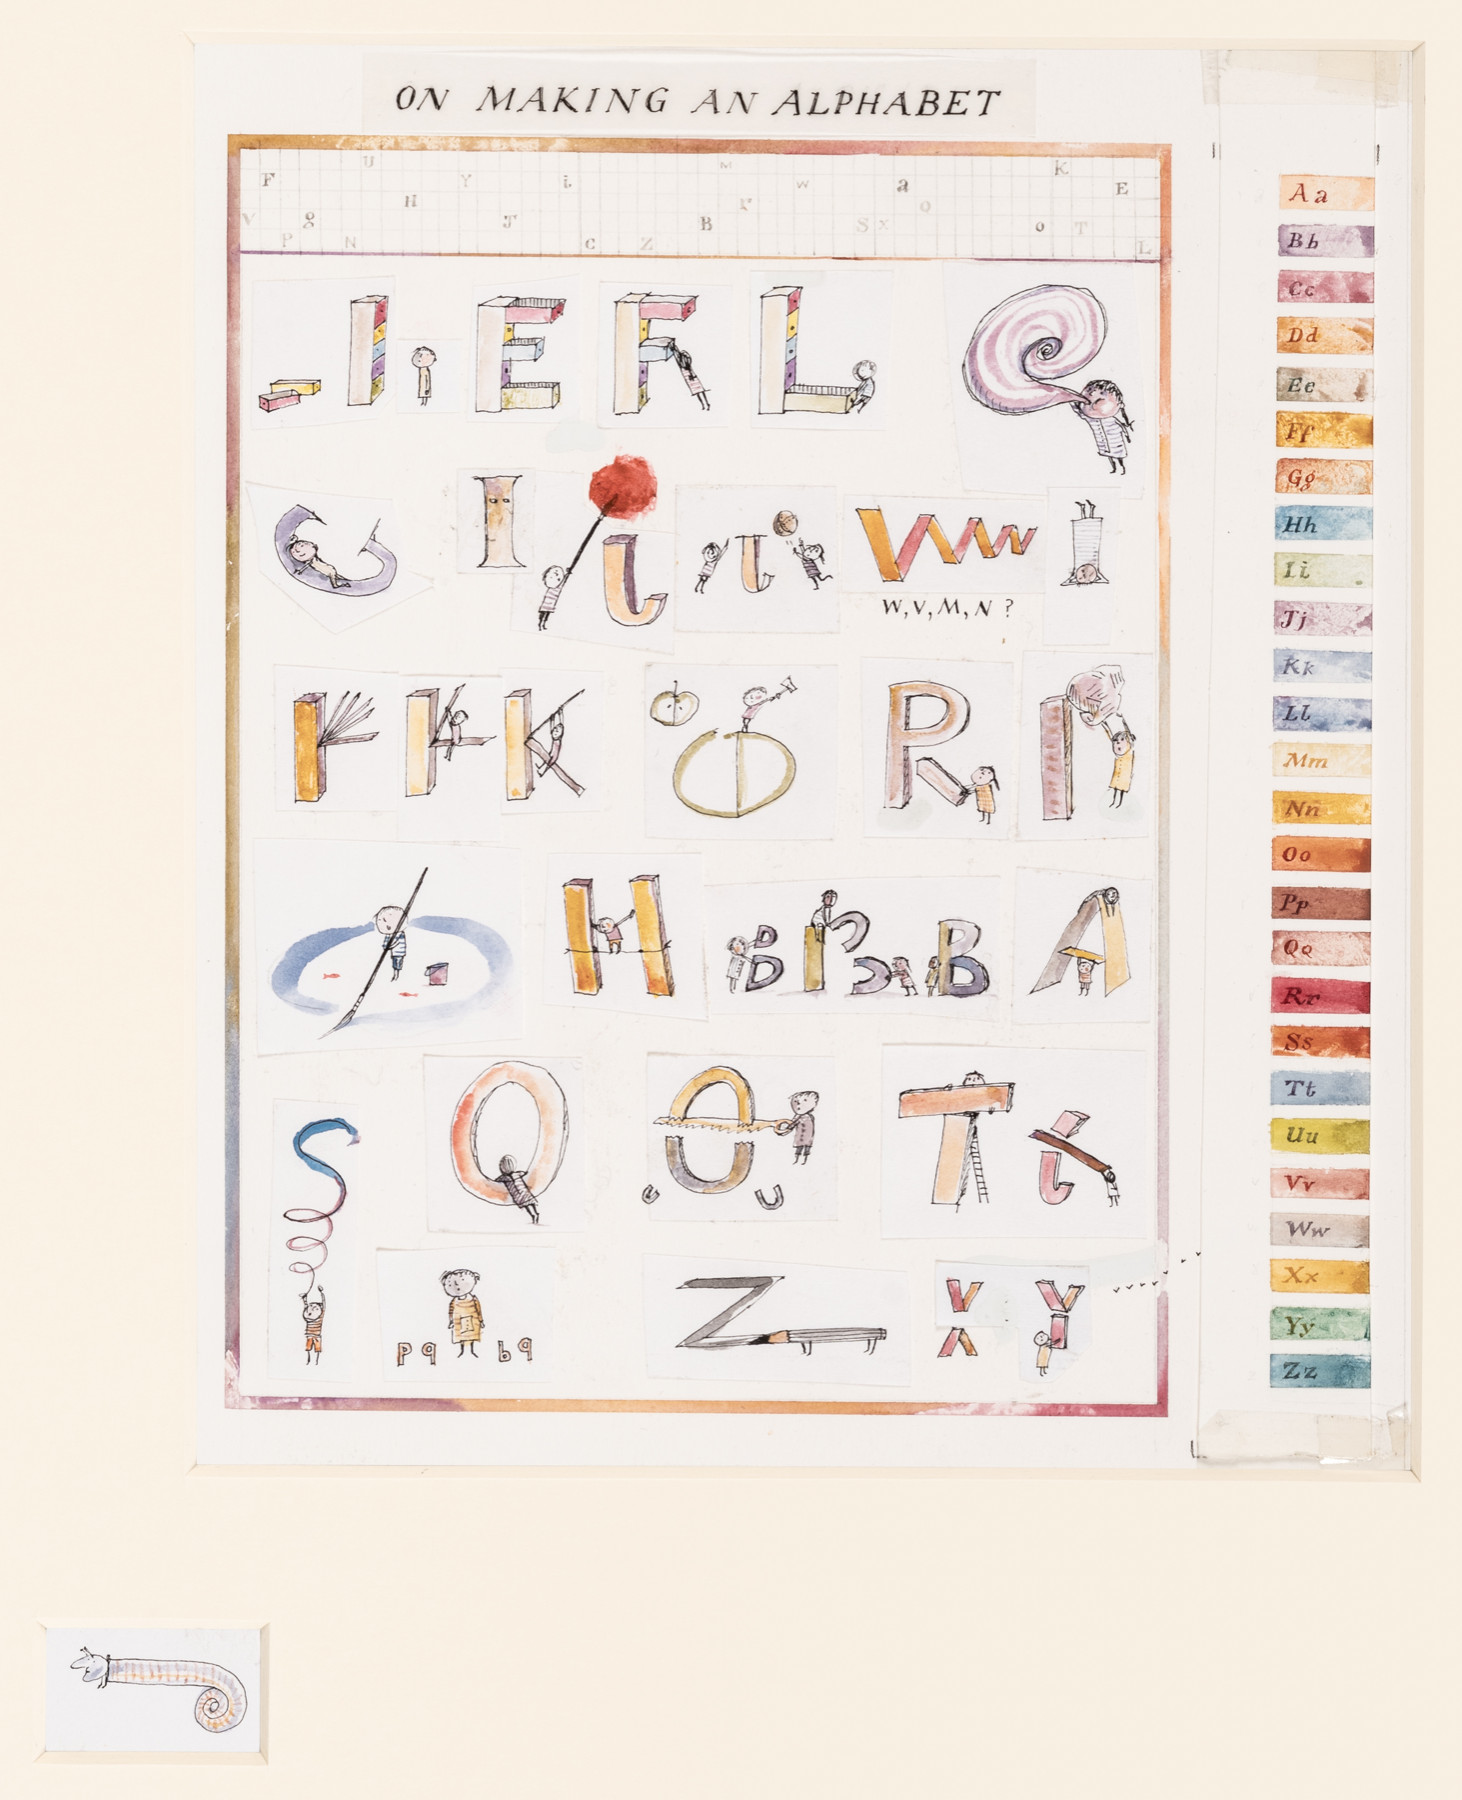 ON MAKING AN ALPHABET
U M K
F Y i w a E
H r Q
V g J B S x o T
P N C Z L
I E F L
I J W w
W, V, M, N ?
K R
H B B A
S Q T
p q b q
Z
Y
Aa
Bb
Cc
Dd
Ee
Ff
Gg
Hh
Ii
Jj
Kk
Ll
Mm
Nn
Oo
Pp
Qq
Rr
Ss
Tt
Uu
Vv
Ww
Xx
Yy
Zz